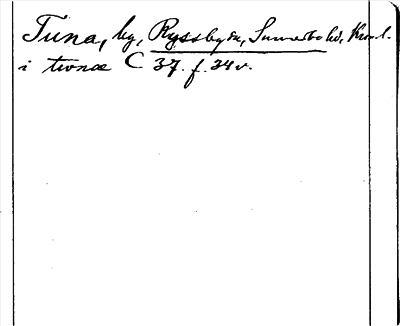 Tuna, by, Ryssby sn, Sunnerbo hd, Kron.l.
i twnæ C 37. f. 34 v.